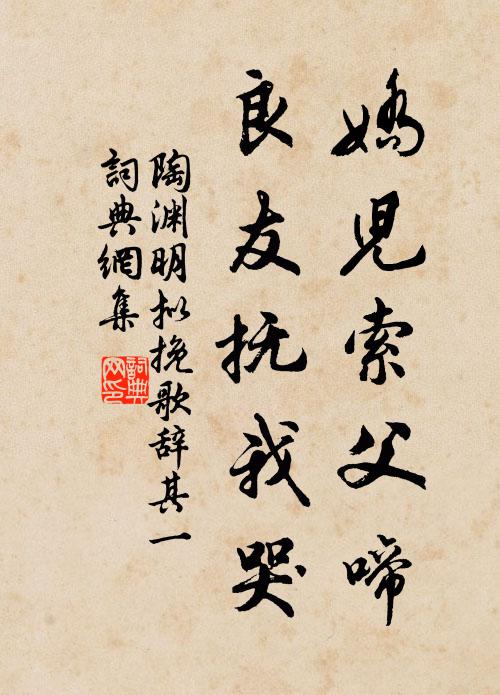 娇児索父啼
良友抚我哭
陶渊明拟挽歌辞其一
詞典網集
詞典网印